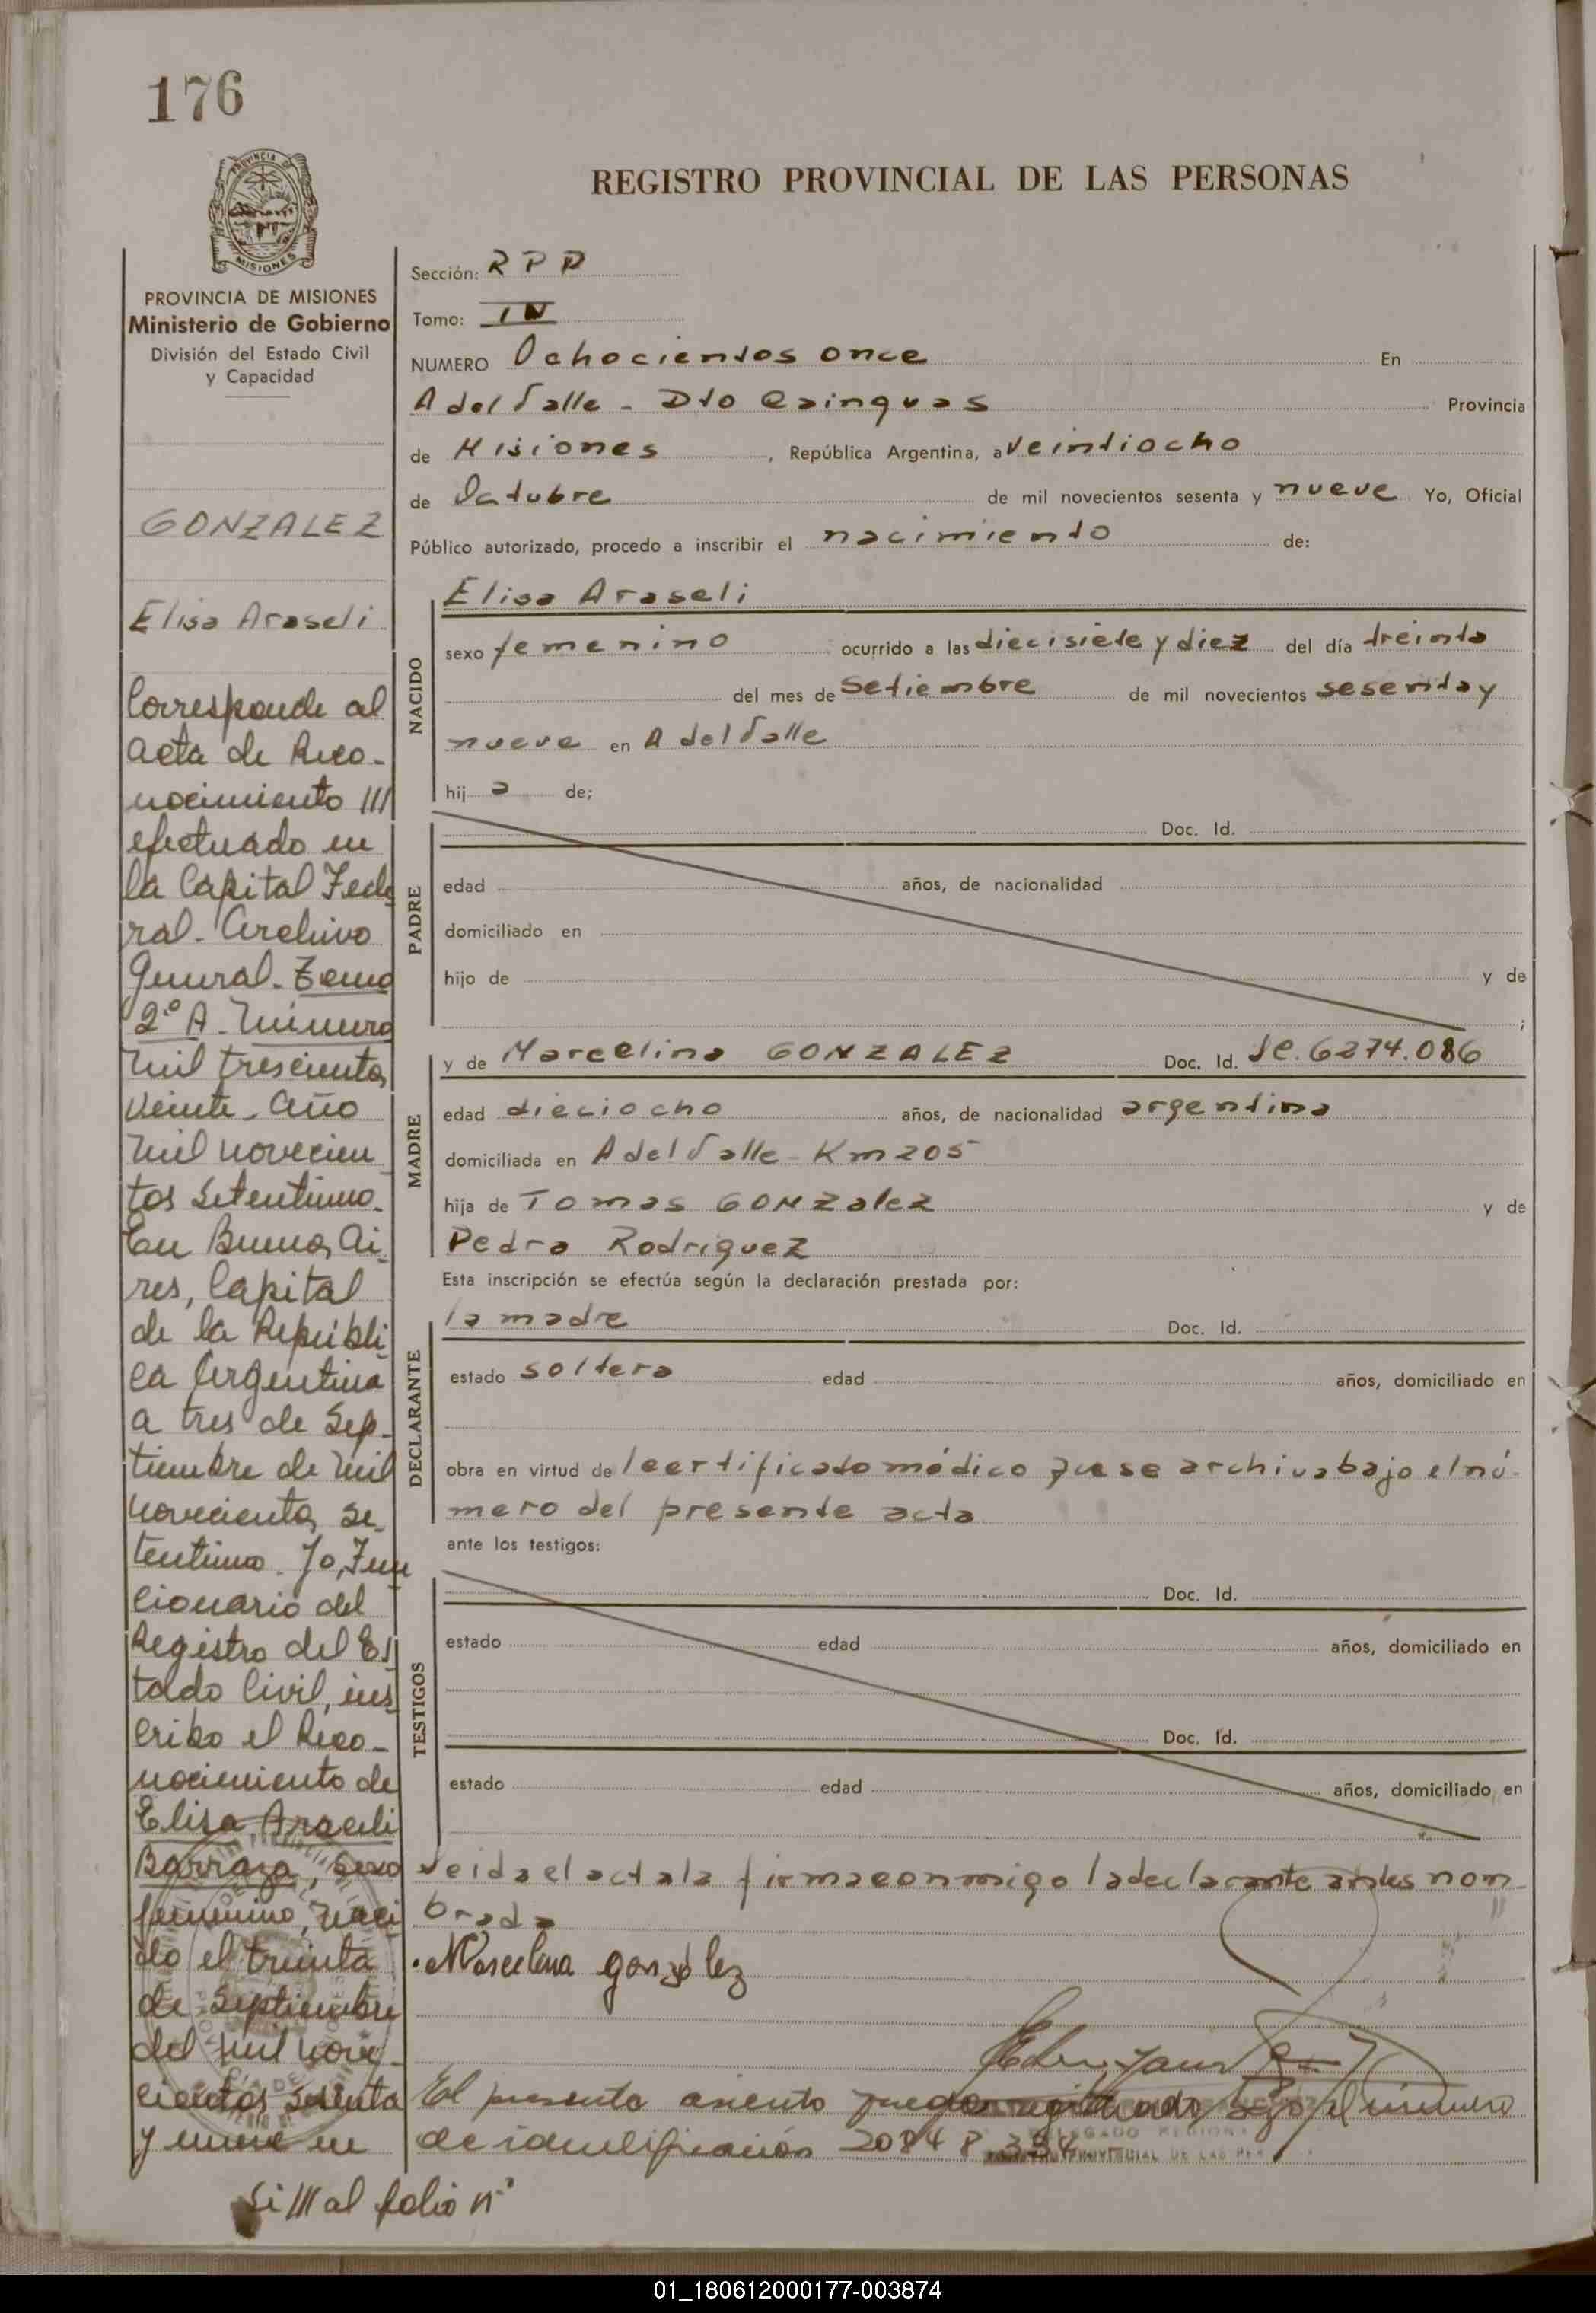 176
PROVINCIA DE MISIONES
REGISTRO PROVINCIAL DE LAS PERSONAS
PROVINCIA DE MISIONES
Ministerio de Gobierno
División del Estado Civil
y Capacidad
GONZALEZ
Elisa Araseli
Corresponde al
acta de Reco-
nocimiento ///
efectuado en
la Capital Fede
ral. Archivo
General. Tomo
2º A. Número
mil trescientos
veinte. Año
mil novecien
tos setentiuno.
En Buenos Ai
res, Capital
de la Repúbli
ca Argentina
a tres de Sep-
tiembre de mil
novecientos se
tentiuno. Yo, Fun
cionario del
Registro del Es
tado Civil, ins
cribo el Reco-
nocimiento de
Elisa Araceli
Barraza, sexo
femenino, naci
do el treinta
de Septiembre
del mil nove-
cientos sesenta
y nueve en
Si /// al folio nº
Sección: R P P
Tomo: IV
NUMERO Ochocientos once En
A del Valle - Dto Cainguas Provincia
de Misiones, República Argentina, a veintiocho
de Octubre de mil novecientos sesenta y nueve Yo, Oficial
Público autorizado, procedo a inscribir el nacimiento de:
NACIDO
Elisa Araseli
sexo femenino ocurrido a las diecisiete y diez del día treinta
del mes de Setiembre de mil novecientos sesenta y
nueve en A del Valle
hij a de;
PADRE
Doc. Id.
edad años, de nacionalidad
domiciliado en
hijo de y de
;
MADRE
y de Marcelina GONZALEZ Doc. Id. 6274.086
edad dieciocho años, de nacionalidad argentina
domiciliada en A del Valle - Km 205
hija de Tomas GONZalez y de
Pedra Rodriguez
Esta inscripción se efectúa según la declaración prestada por:
DECLARANTE
la madre Doc. Id.
estado soltera edad años, domiciliado en
obra en virtud de lcertificado médico que se archiva bajo el nú-
mero del presente acta
ante los testigos:
TESTIGOS
Doc. Id.
estado edad años, domiciliado en
Doc. Id.
estado edad años, domiciliado en
leida el acta la firma conmigo la declarante antes nom
brada
Marcelina gonzález
El presente asiento queda registrado bajo el número
de identificación
01_180612000177-003874